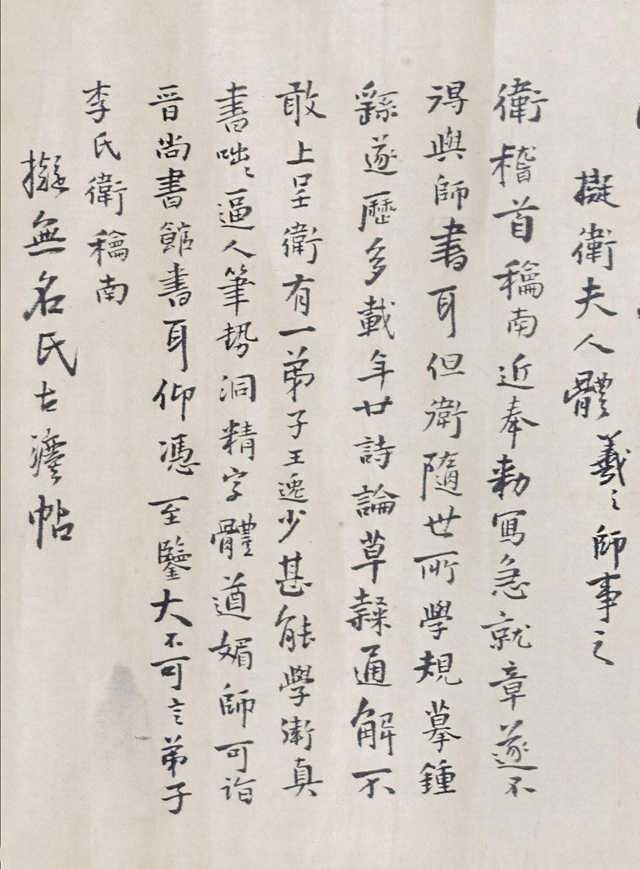 擬衛夫人體 羲之師事之
衛稽首稐南近奉勅寫急就章遂不
得與師書耳但衛隨世所學規摹鍾
繇遂歷多載年廿詩論草隸通解不
敢上呈衛有一弟子王逸少甚能學衛真
書咄咄逼人筆勢洞精字體遒媚師可詣
晉尚書館書耳仰憑至鑒大不可言弟子
李氏衛稐南
擬無名氏古
帖